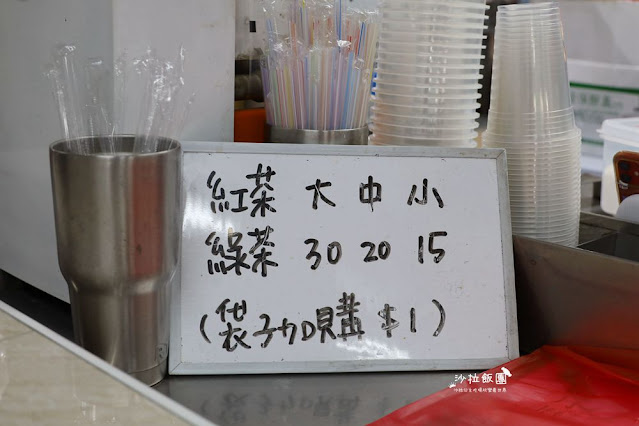 紅茶 大 中 小
綠茶 30 20 15
(袋子加購 $1)
沙拉飯團